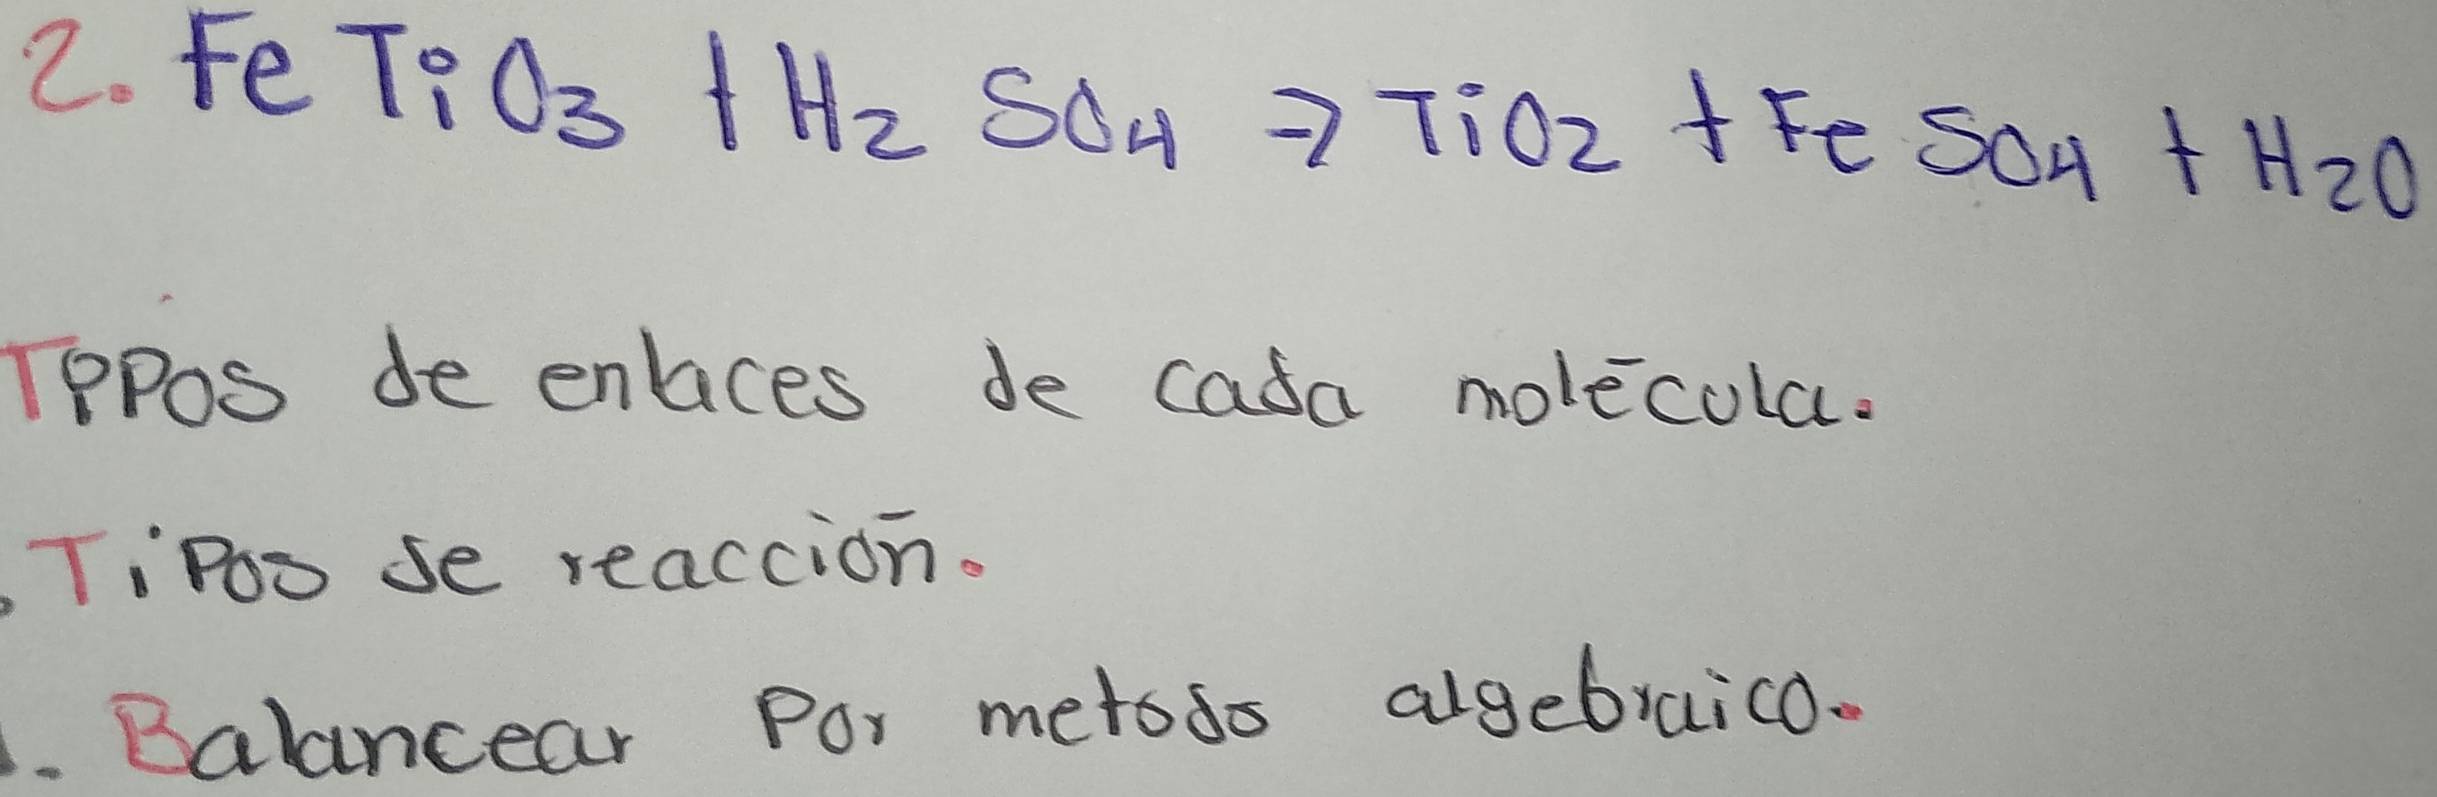 2. FeTiO3 + H2SO4 ⇒ TiO2 + FeSO4 + H2O
Tipos de enlaces de cada molécula.
. Tipos de reacción.
. Balancear Por metodo algebraico.